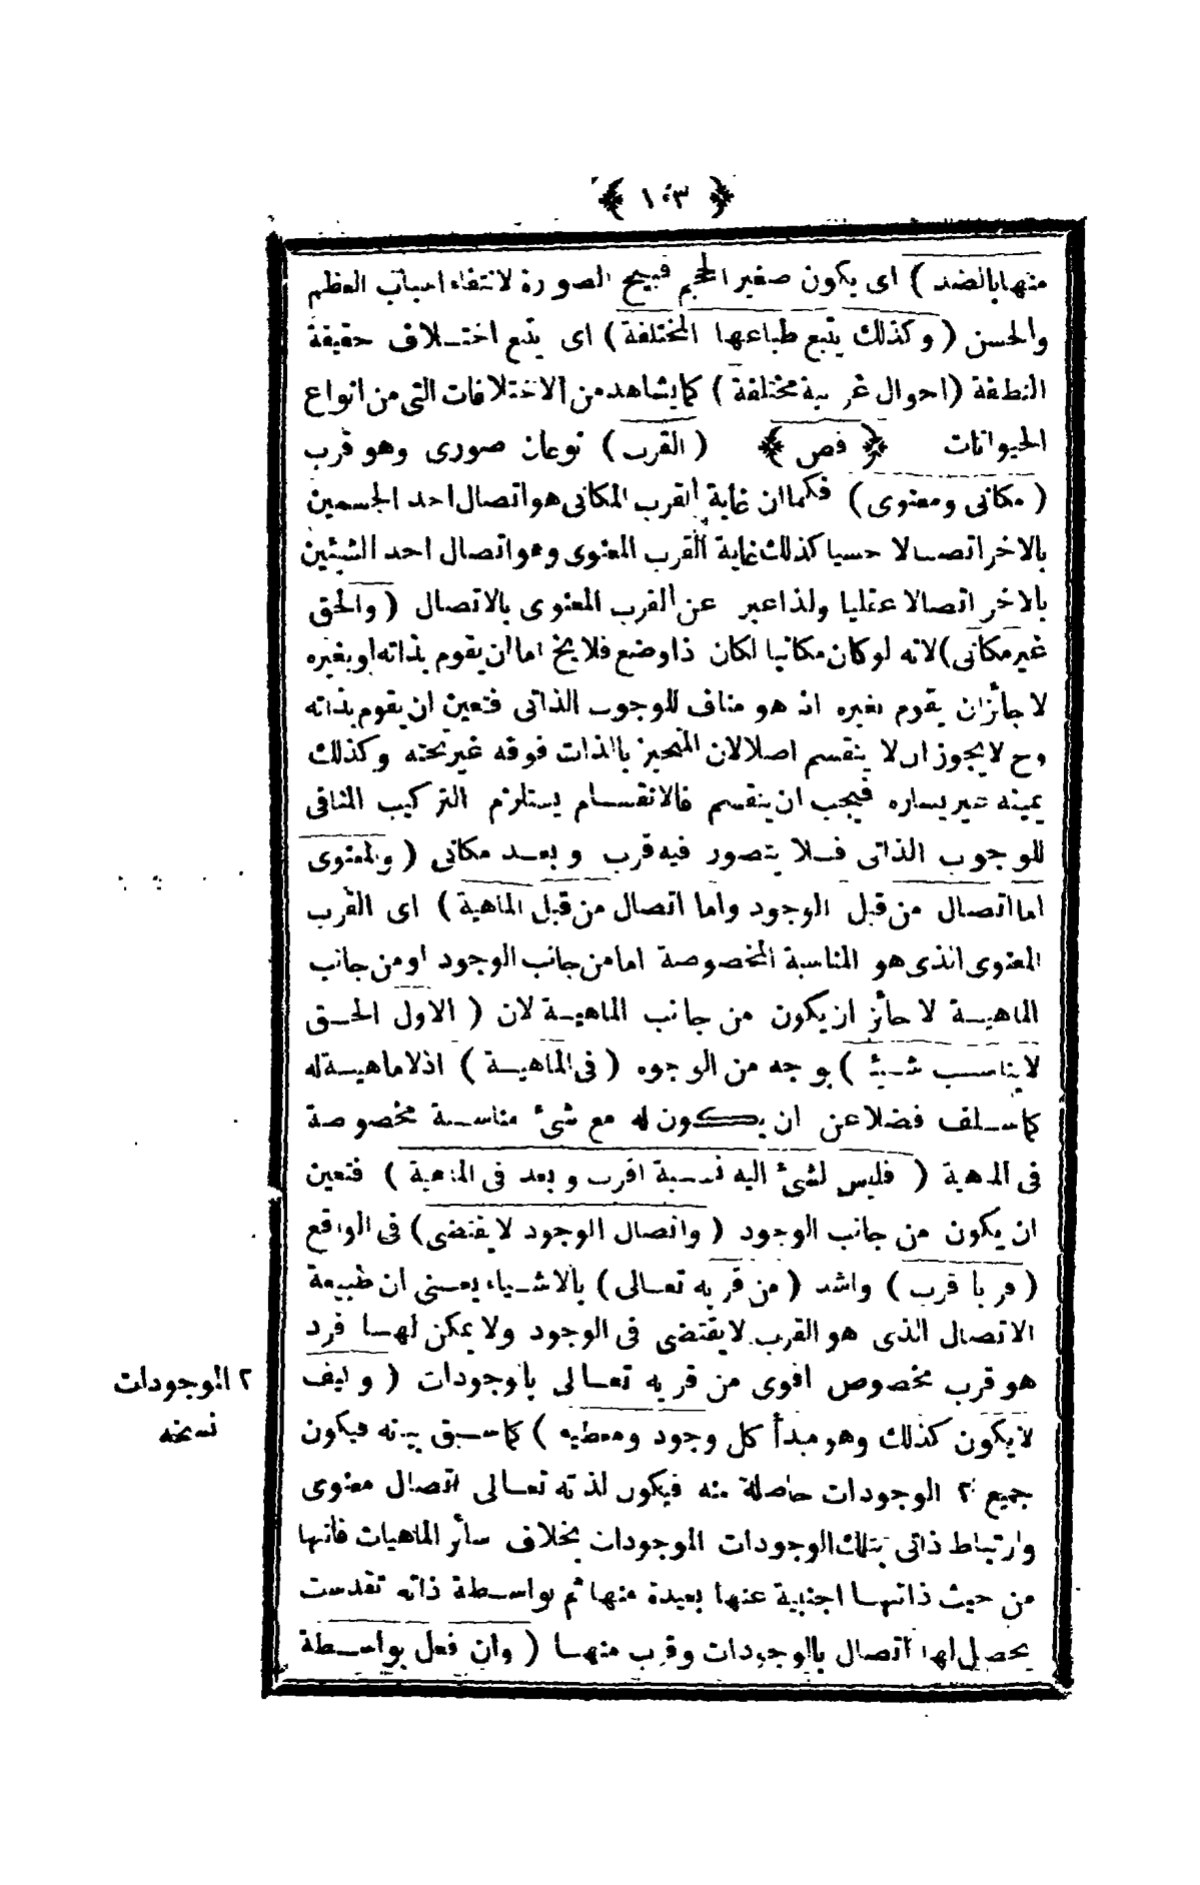 ﴿ ١٠٣ ﴾
منها بالضد ) اى يكون صغير الحجم قبيح الصورة لانتفاء اسباب العظم
والحسن ( وكذلك يتبع طباعها المختلفة ) اى يتبع اختلاف حقيقة
النطفة ( احوال غريبة مختلفة ) كما يشاهد من الاختلافات التى من انواع
الحيوانات ﴿ فص ﴾ ( القرب ) نوعان صورى وهو قرب
( مكانى ومعنوى ) فكما ان غاية القرب المكانى هو اتصال احد الجسمين
بالاخر اتصالا حسيا كذلك غاية القرب المعنوى وهو اتصال احد الشيئين
بالاخر اتصالا عقليا ولذا عبر عن القرب المعنوى بالاتصال ( والحق
غير مكانى ) لانه لو كان مكانيا لكان ذا وضع فلا يخ اما ان يقوم بذاته او بغيره
لا جائز ان يقوم بغيره اذ هو مناف للوجوب الذاتى فتعين ان يقوم بذاته
وح لا يجوز ان لا ينقسم اصلا لان المتحيز بالذات فوقه غير تحته وكذلك
يمينه غير يساره فيجب ان ينقسم فالانقسام يستلزم التركيب المنافى
للوجوب الذاتى فلا يتصور فيه قرب وبعد مكانى ( والمعنوى
اما اتصال من قبل الوجود واما اتصال من قبل الماهية ) اى القرب
المعنوى الذى هو المناسبة المخصوصة اما من جانب الوجود او من جانب
الماهية لا جائز ان يكون من جانب الماهية لان ( الاول الحق
لا يناسب شيئا ) بوجه من الوجوه ( فى الماهية ) اذ لا ماهية له
كما سلف فضلا عن ان يكون له مع شئ مناسبة مخصوصة
فى الماهية ( فليس لشئ اليه نسبة اقرب وبعد فى الماهية ) فتعين
ان يكون من جانب الوجود ( واتصال الوجود لا يقتضى ) فى الواقع
( قربا اقرب ) واشد ( من قربه تعالى ) بالاشياء يعنى ان طبيعة
الاتصال الذى هو القرب لا يقتضى فى الوجود ولا يمكن لها فرد
هو قرب مخصوص اقوى من قربه تعالى بالوجودات ( وكيف
لا يكون كذلك وهو مبدأ كل وجود ومعطيه ) كما سبق بيانه فيكون
جميع ٢ الوجودات حاصلة منه فيكون لذاته تعالى اتصال معنوى
وارتباط ذاتى بتلك الوجودات الموجودات بخلاف سائر الماهيات فانها
من حيث ذاتها اجنبية عنها بعيدة منها ثم بواسطة ذاته تقدست
يحصل لها اتصال بالوجودات وقرب منها ( وان فعل بواسطة
٢ الموجودات
نسخه